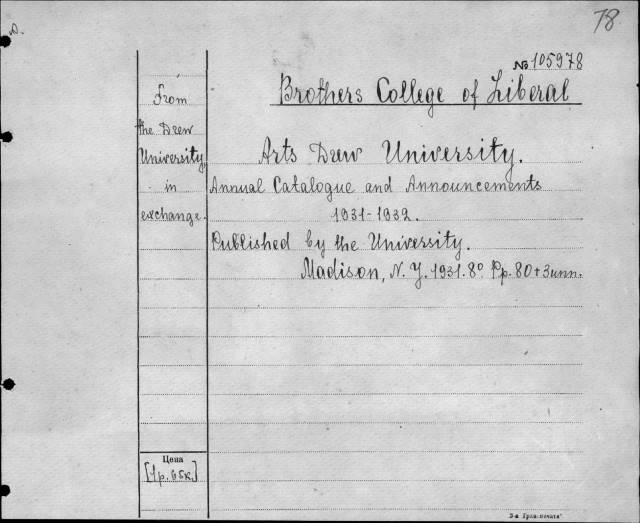 78
№ 105978
Brothers College of Liberal
Arts Drew University.
Annual Catalogue and Announcements
1931-1932.
Published by the University.
Madison, N. Y. 1931. 8° Pp. 80+3unn.
From
the Drew
University
in
exchange.
Цена
[1р. 65к.]